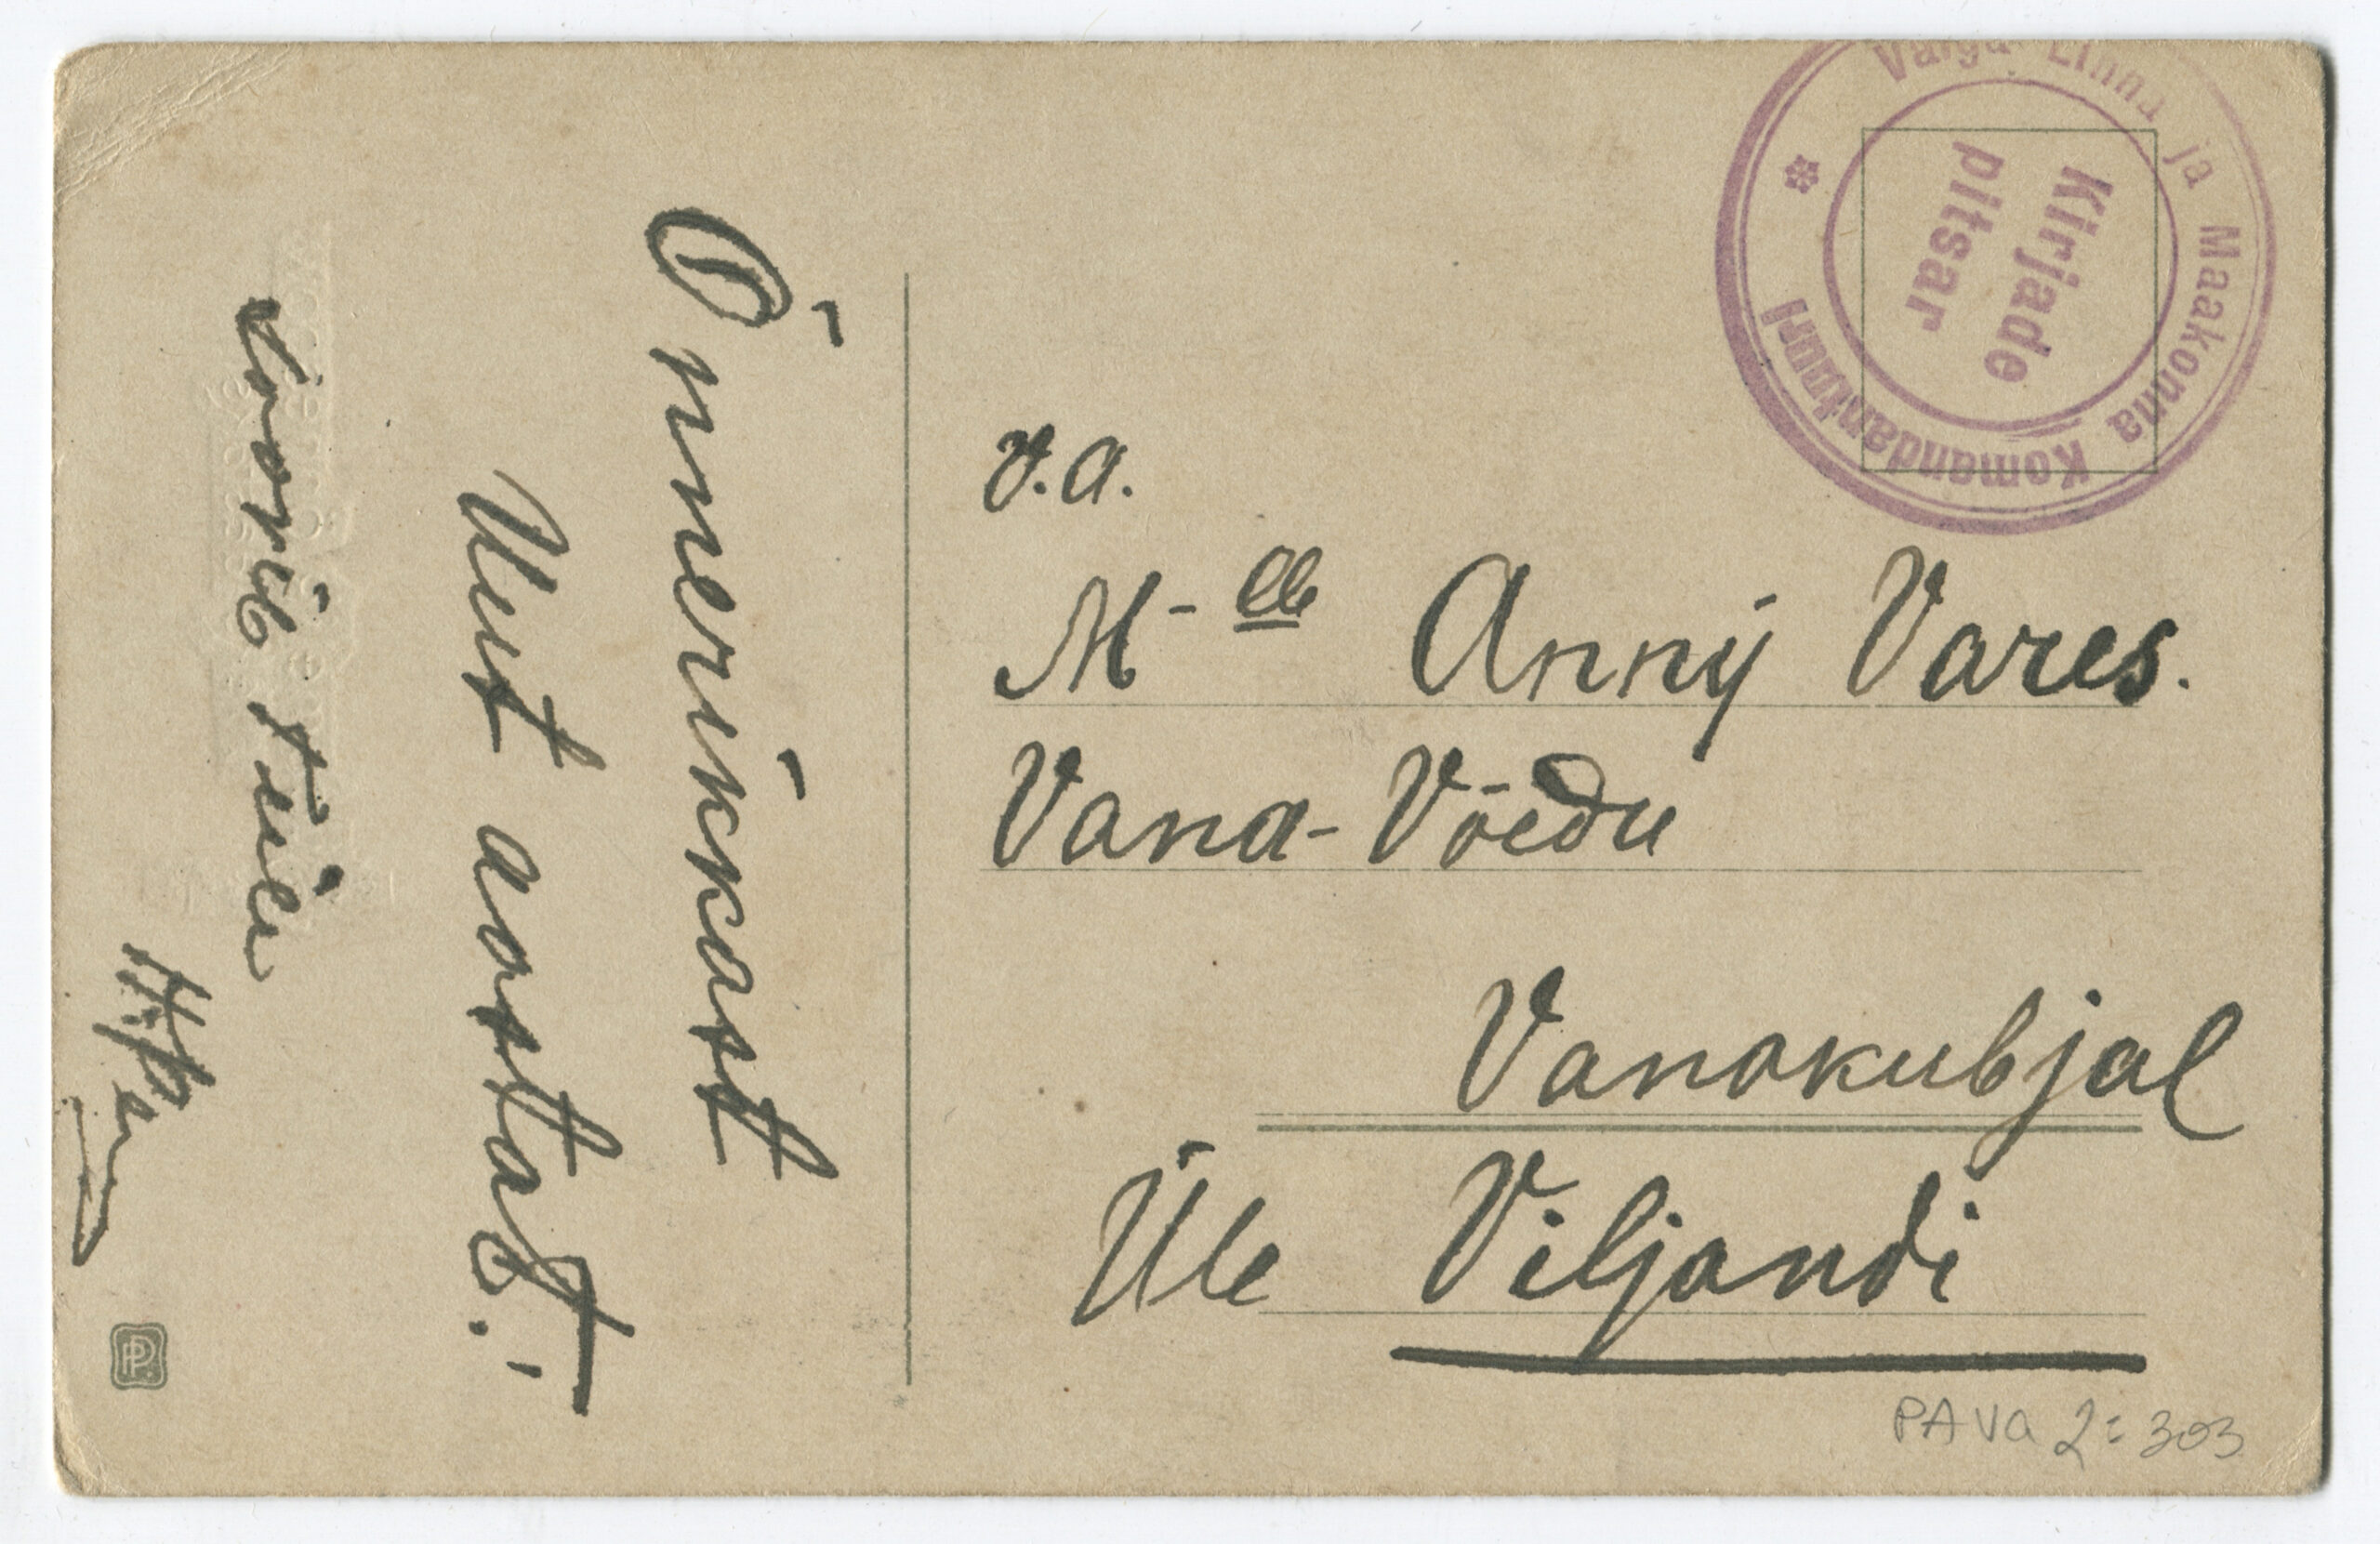 Õnnerikast
Uut aastat!
soovib Teile
Valga Linna ja Maakonna Komandantuuri
Kirjade
pitsar
v.a.
M-lle Anny Vares.
Vana-Võedu
Vanakubjal
Üle Viljandi
PP.
PAVA 2:303